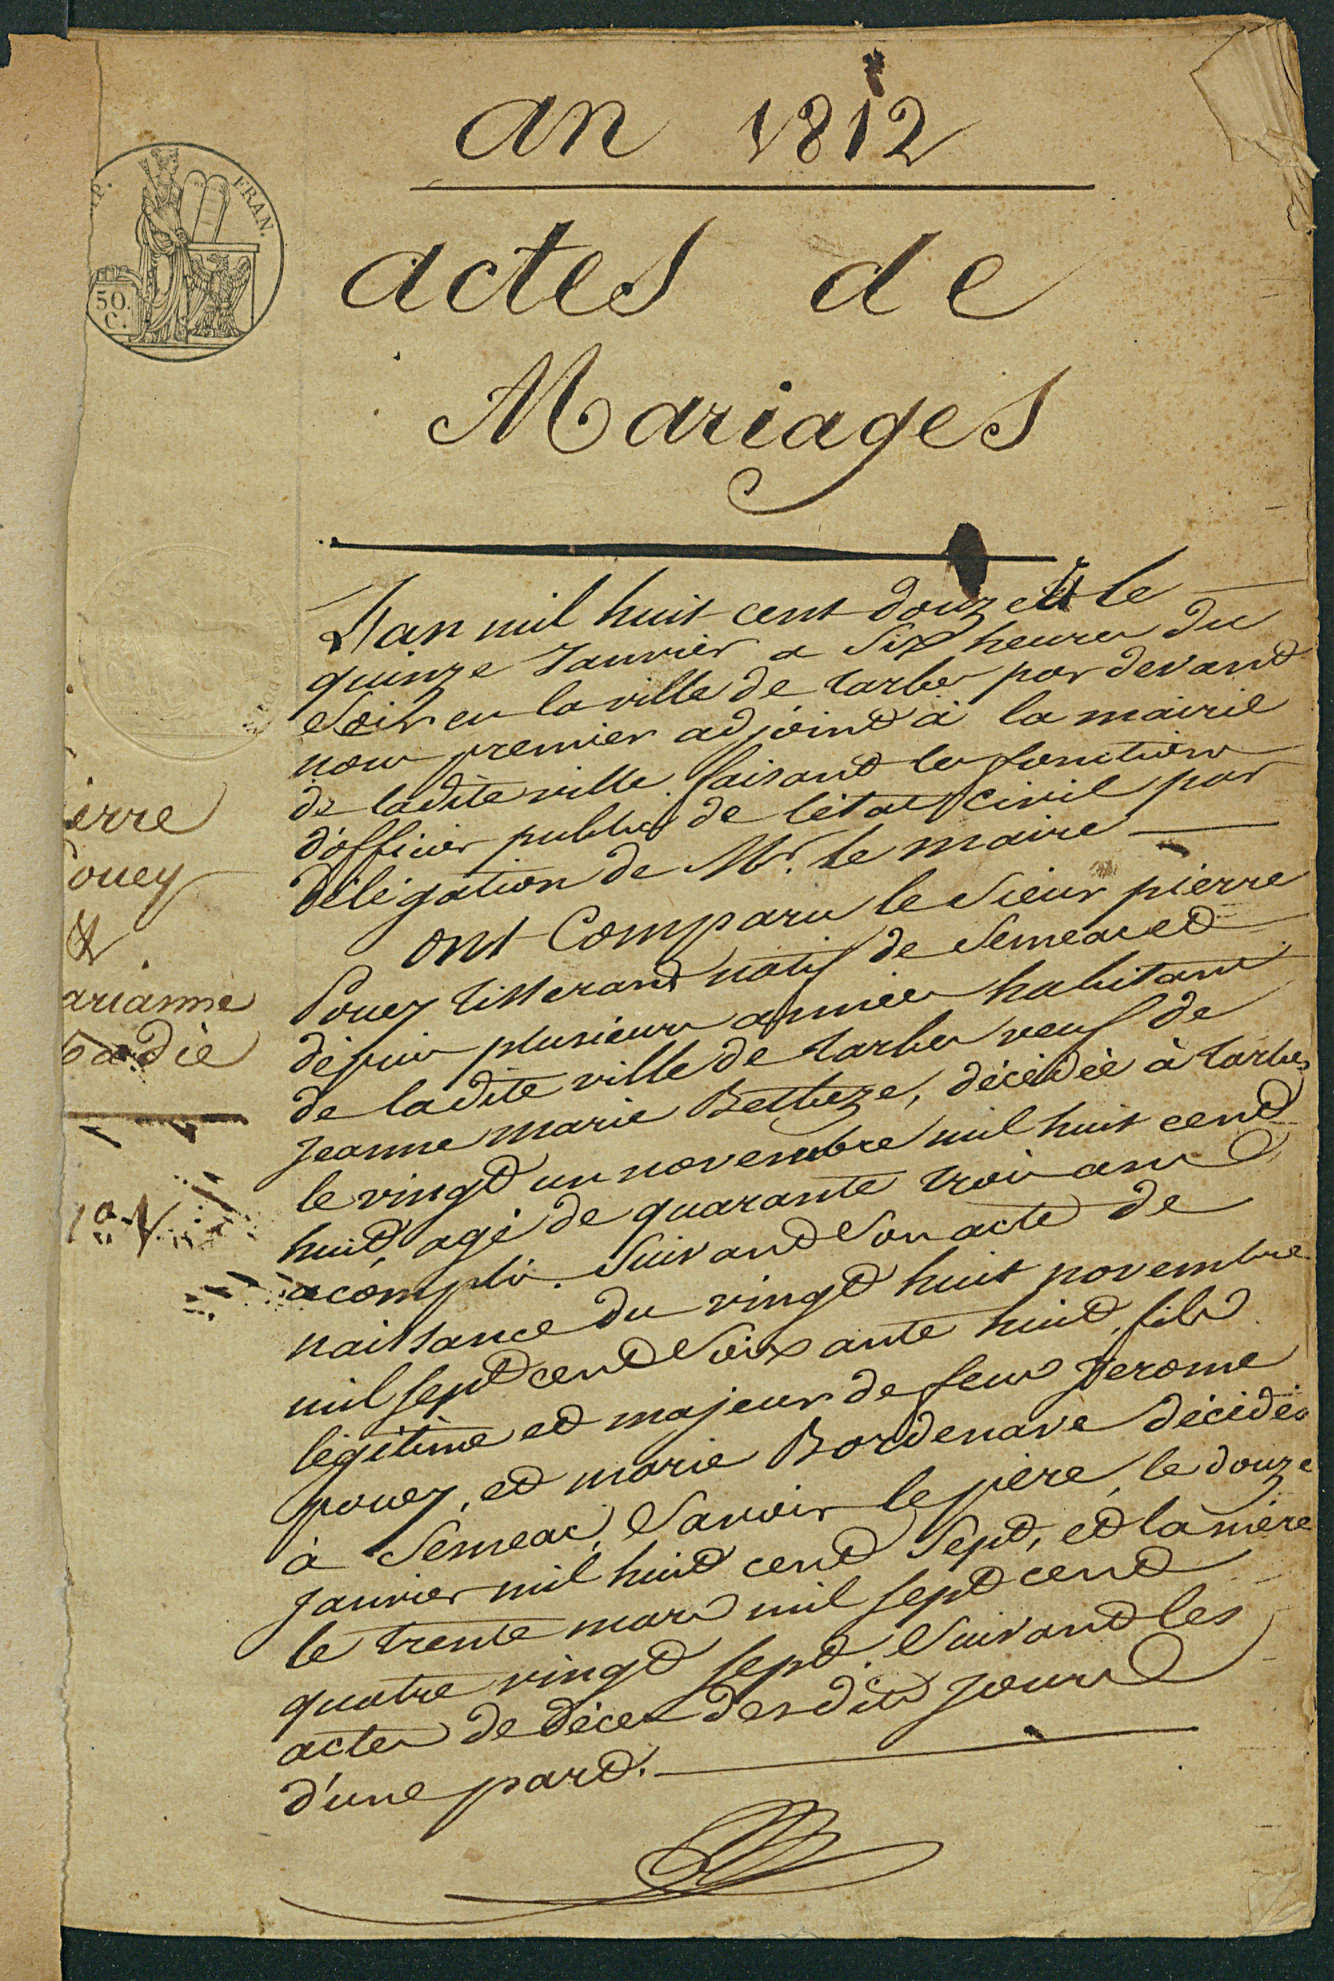 an 1812
actes de
Mariages
FRAN.
50.
C.
L'an mil huit cent douze et le
quinze Janvier a six heures du
Soir en la ville de tarbes par devant
nous premier adjoint à la mairie
de ladite ville faisant les fonctions
d'officier public de l'état civil par
délégation de Mr. le maire
ont Comparu le Sieur pierre
Pouey tisserand natif de Semeac et
depuis plusieurs années habitant
de ladite ville de tarbes veuf de
Jeanne marie Betbeze, décédée à tarbes
le vingt un novembre mil huit cent
huit, agé de quarante trois ans
acomplis. Suivant Son acte de
naissance du vingt huit novembre
mil sept cent Soixante huit, fils
légitime et majeur de feus Jerome
pouey, et marie Bordenave décédés
à Semeac, Savoir le père, le douze
Janvier mil huit cent Sept, et la mère
le trente mars mil sept cent
quatre vingt sept. Suivant les
actes de décès desdits jours
d'une part.
ierre
ouey
&
arianne
badie
1a